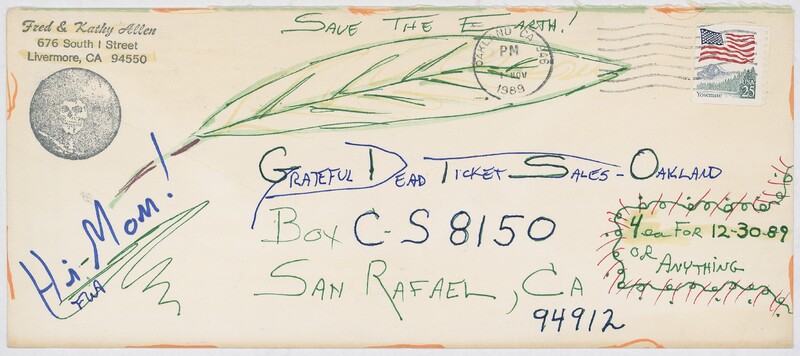 Fred & Kathy Allen
676 South I Street
Livermore, CA 94550
SAVE THE EARTH!
OAKLAND, CA 946
PM
NOV
1989
USA
25
Yosemite
GRATEFUL DEAD TICKET SALES - OAKLAND
BOX C-S 8150
SAN RAFAEL, CA
94912
4ea FOR 12-30-89
OR ANYTHING
Hi-Mom!
FWA